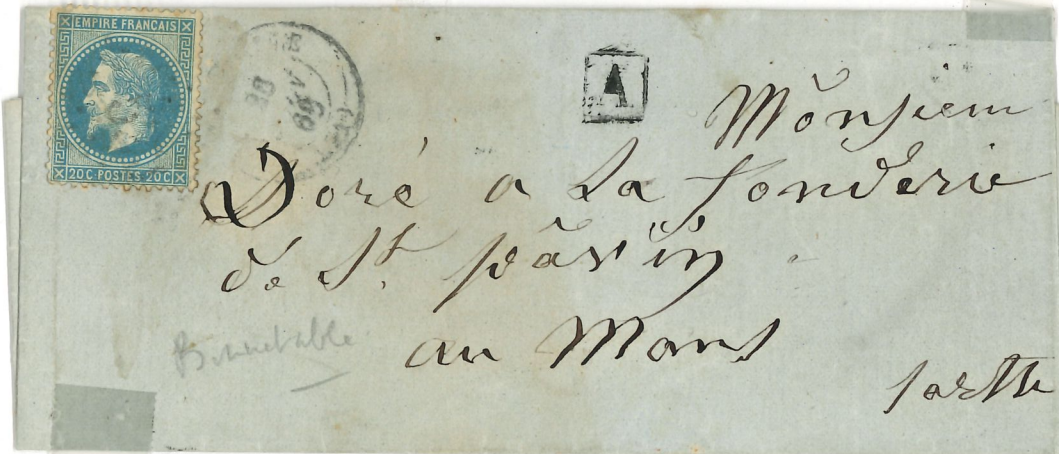 EMPIRE FRANÇAIS
20C·POSTES 20C
28
69
A
Monsieur
Doré a La fonderie
de St. pavin
au Mans
Sarthe
Bonnetable